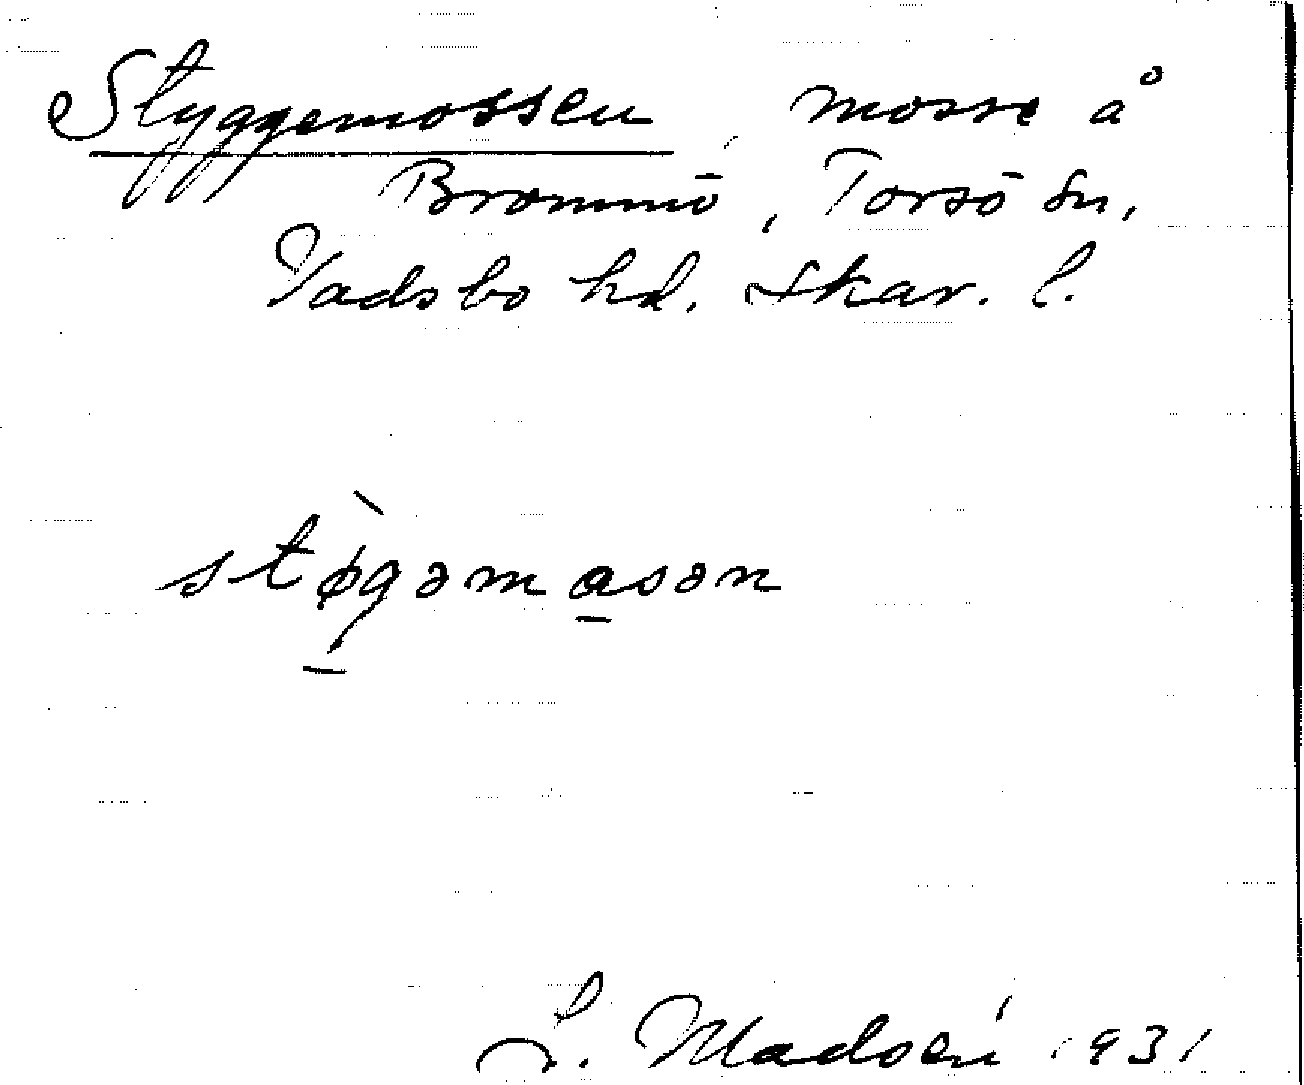 Styggemossen, mosse å
Brommö, Torsö sn,
Vadsbo hd. Skar. l.
stø̀gəmasən
L. Madsén 1931